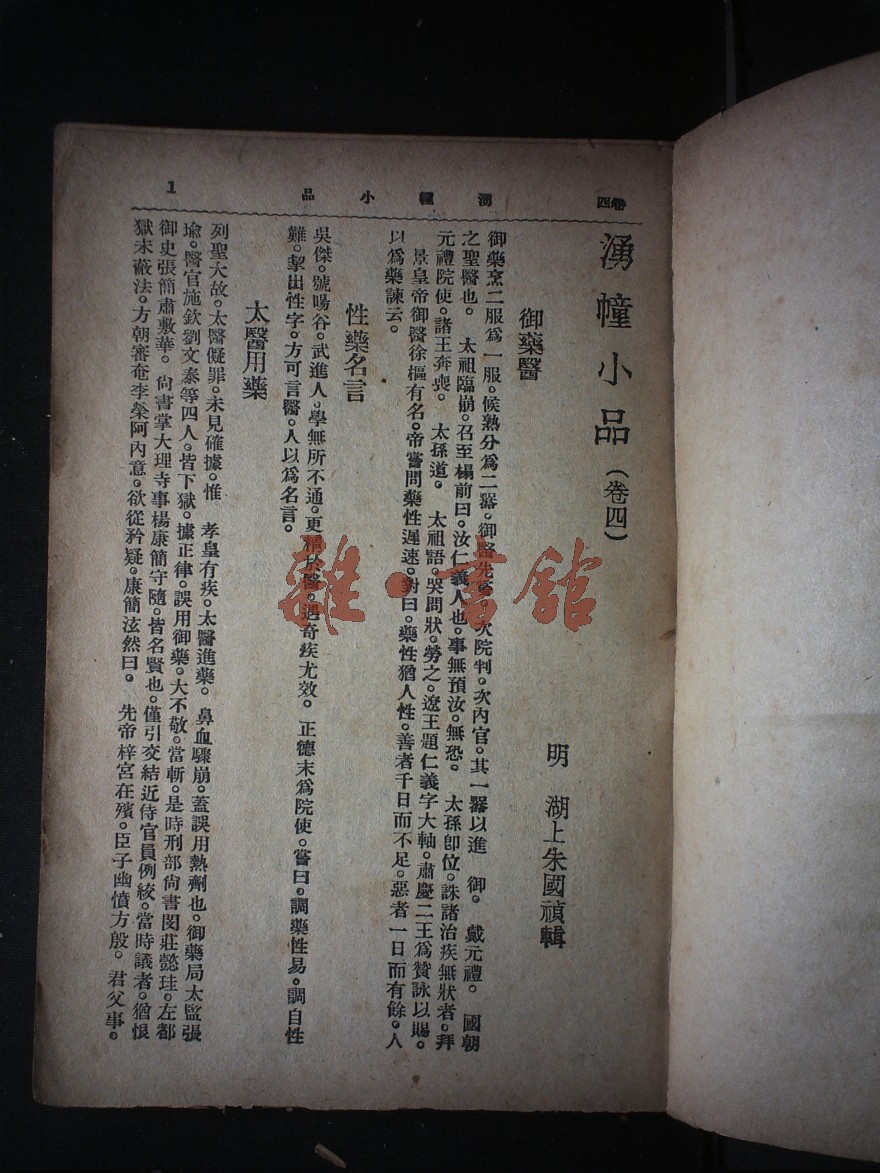 卷四
湧幢小品
1
湧幢小品(卷四)
明 湖上朱國禎輯
御藥醫
御藥烹二服爲一服。候熟分爲二器。御醫先嘗。次院判。次內官。其一器以進 御。 戴元禮。 國朝
之聖醫也。 太祖臨崩。召至榻前曰。汝仁義人也。事無預汝。無恐。 太孫卽位。誅諸治疾無狀者。拜
元禮院使。諸王奔喪。 太孫道。 太祖語。哭問狀。勞之。遼王題仁義字大軸。肅慶二王爲贊詠以賜。
景皇帝御醫徐樞有名。帝嘗問藥性遲速。對曰。藥性猶人性。善者千日而不足。惡者一日而有餘。人
以爲藥諫云。
性藥名言
吳傑。號暘谷。武進人。學無所不通。更精於醫。遇奇疾尤效。 正德末爲院使。嘗曰。調藥性易。調自性
難。挈出性字。方可言醫。人以爲名言。
太醫用藥
列聖大故。太醫儗罪。未見確據。惟 孝皇有疾。太醫進藥。 鼻血驟崩。蓋誤用熱劑也。御藥局太監張
瑜。醫官施欽劉文泰等四人。皆下獄。據正律。誤用御藥。大不敬。當斬。是時刑部尚書閔莊懿珪。左都
御史張簡肅敷華。 尚書掌大理寺事楊康簡守隨。皆名賢也。僅引交結近侍官員例絞。當時議者。猶恨
獄未蔽法。方朝審奄李榮阿內意。欲從矜疑。康簡泫然曰。 先帝梓宮在殯。臣子幽憤方殷。 君父事。
雜·書館